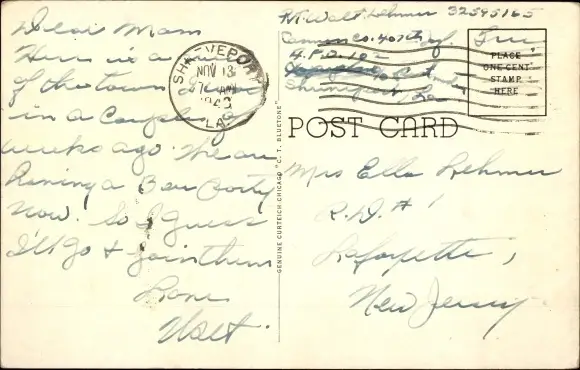 Dear Mom
Here is a
of the town
in a couple of
weeks ago. We are
having a Beer Party
now. So I guess
I'll go & join them
Love
Walt.
SHREVEPORT
NOV 13
7 AM
1943
LA
Pvt. Walt Lehmer 32595165
Cannon Co. 407th Inf. Free
A.P.O. 102
Shreveport, La
PLACE
ONE CENT
STAMP
HERE
POST CARD
GENUINE CURTEICH-CHICAGO "C. T. BLUETONE"
Mrs Ella Lehmer
R.D. # 1
Lafayette,
New Jersey